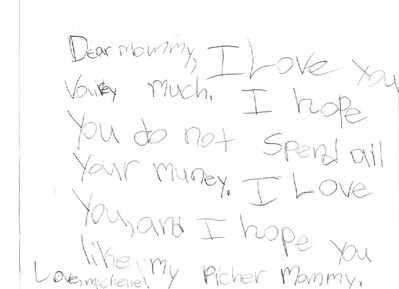 Dear mommy, I Love you
Vairey much. I hope
You do not Spend all
Your muney. I Love
You, and I hope you
like, my Picher Mommy.
Love, michelle!